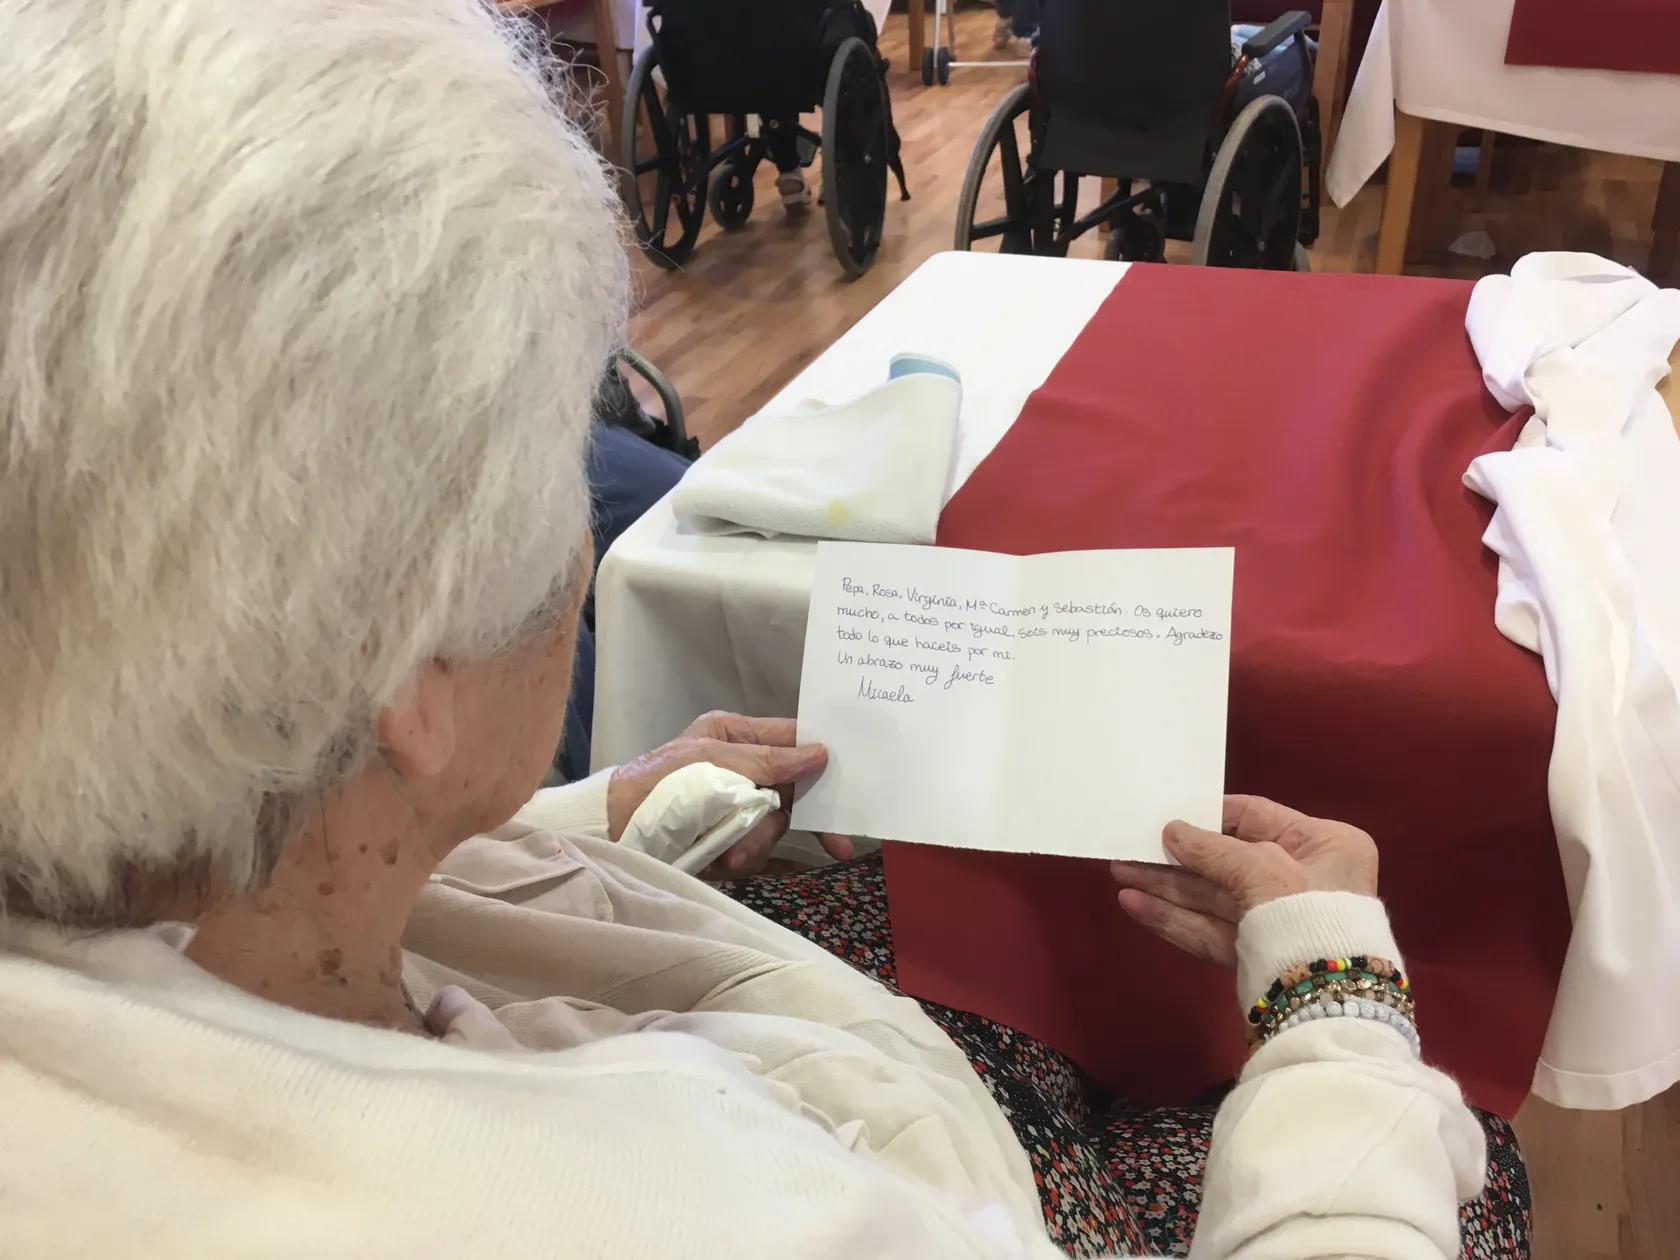 Pepa, Rosa, Virginia, Mª Carmen y Sebastián. Os quiero
mucho, a todos por igual, sois muy preciosos. Agradezco
todo lo que haceis por mi.
Un abrazo muy fuerte
Micaela